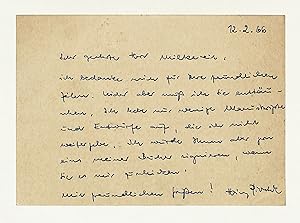 12.2.66
Sehr geehrter Herr
ich bedanke mich für Ihre freundlichen
Zeilen. Leider aber muß ich Sie enttäu-
schen, Ich hebe nur wenige Manuskripte
und Entwürfe auf, die ich nicht
weitergebe. Ich würde Ihnen aber gern
eines meiner Bücher signieren, wenn
Sie es mir schicken.
Mit freundlichen Grüßen!